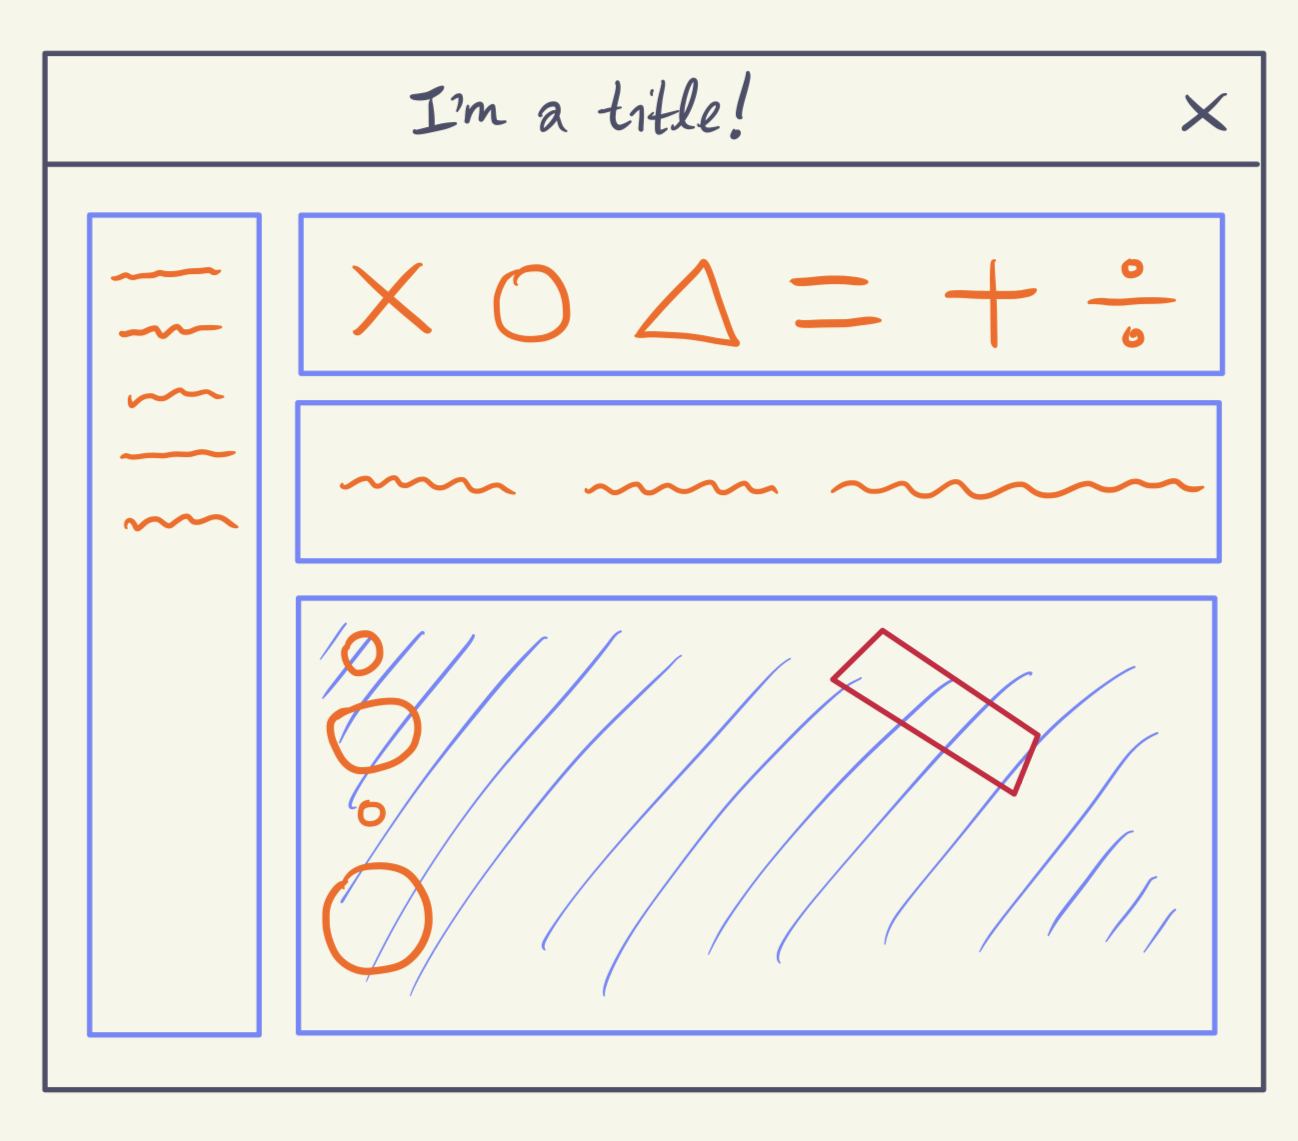 I'm a title!